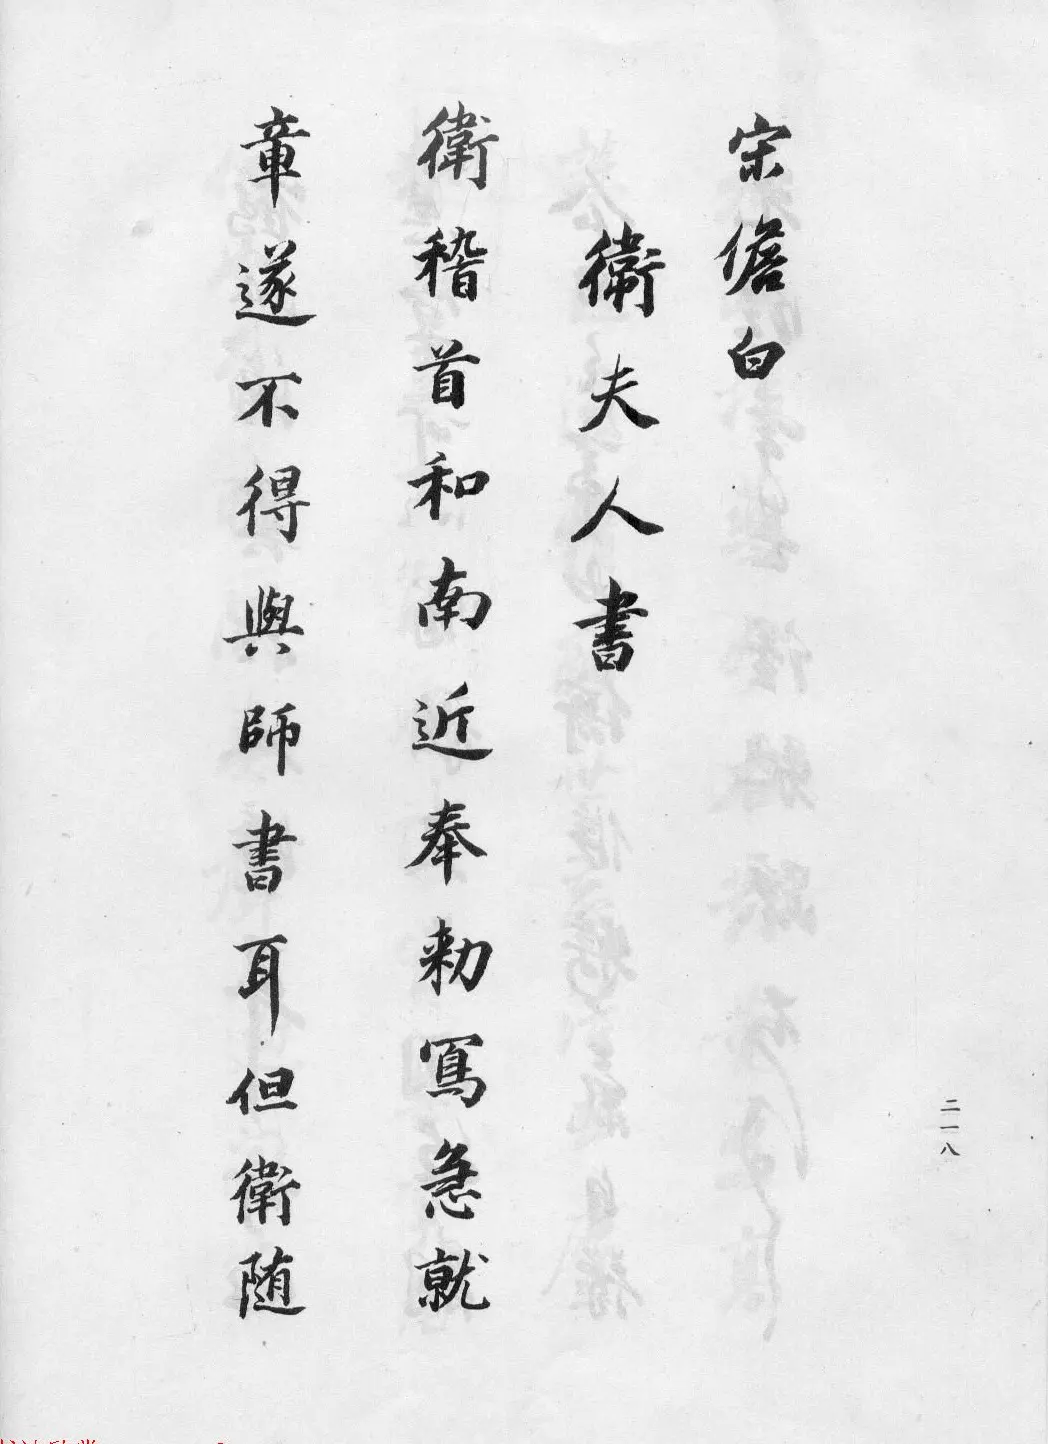 宋儋白
衛夫人書
衛稽首和南近奉勑寫急就
章遂不得與師書耳但衛随
二一八